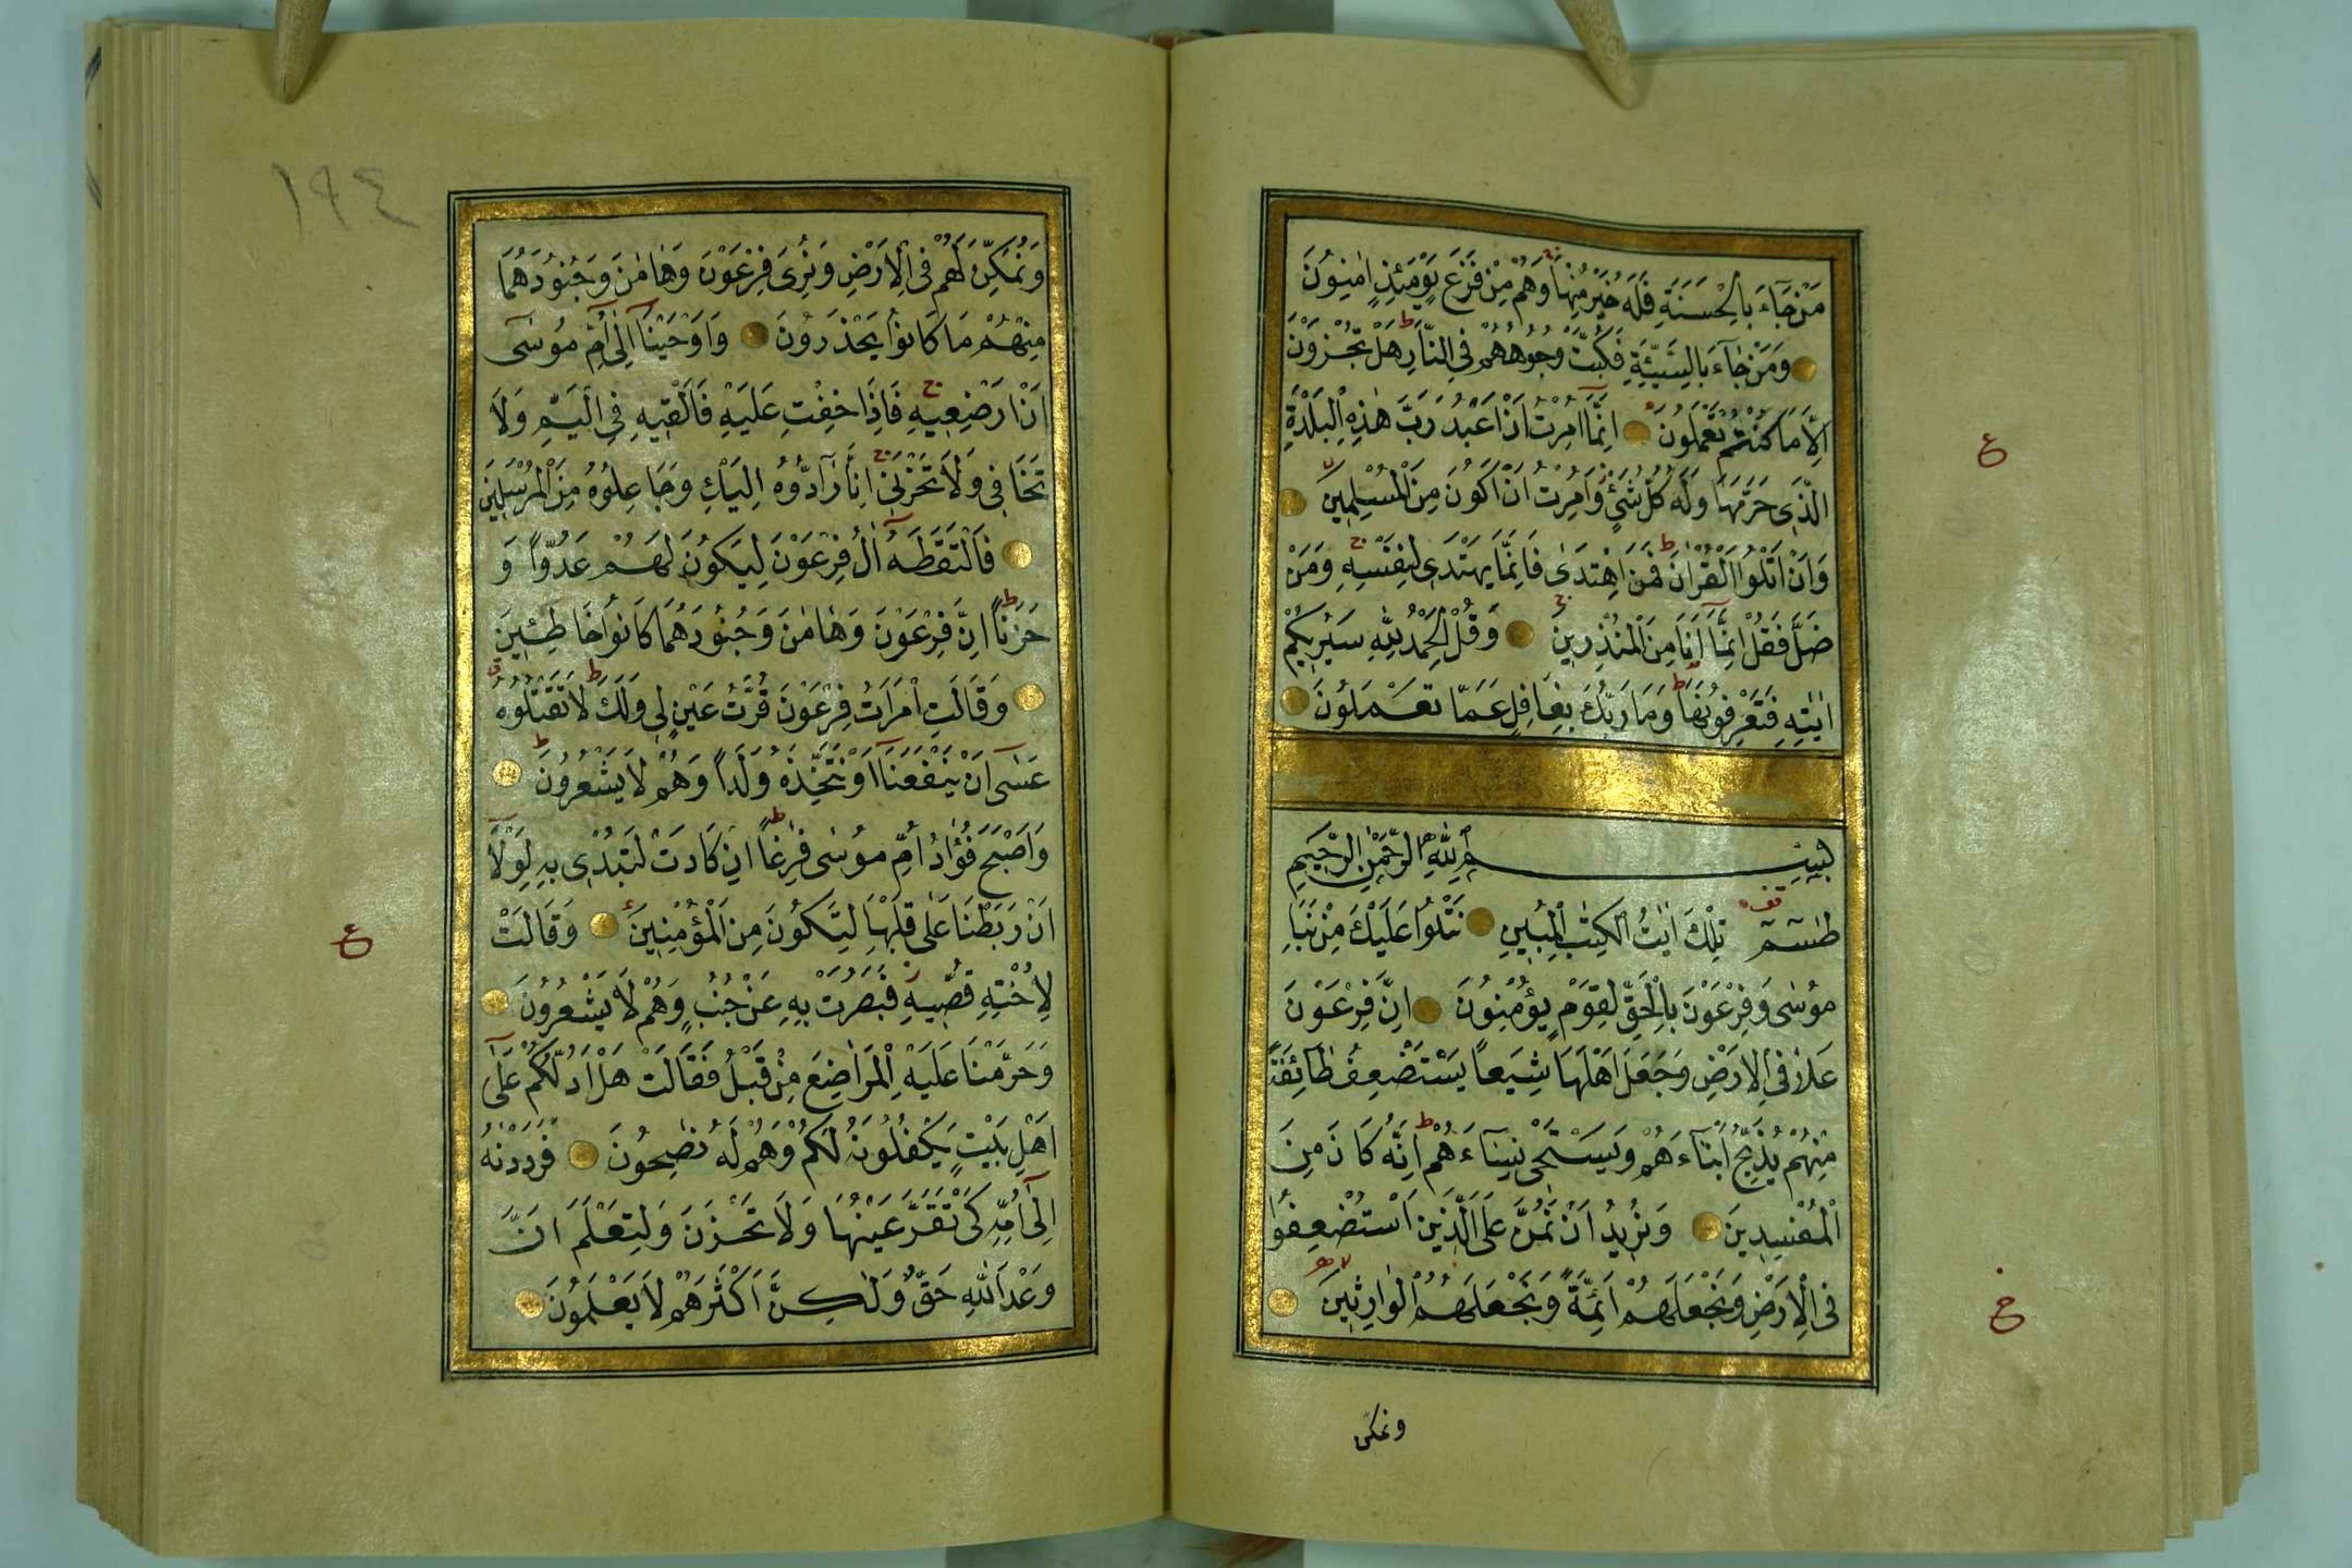 مَنْ جَآءَ بِالْحَسَنَةِ فَلَهُ خَيْرٌ مِنْهَا وَهُمْ مِنْ فَزَعٍ يَوْمَئِذٍ اٰمِنُونَ
وَمَنْ جَآءَ بِالسَّيِّئَةِ فَكُبَّتْ وُجُوهُهُمْ فِى النَّارِ هَلْ تُجْزَوْنَ
اِلَّا مَا كُنْتُمْ تَعْمَلُونَ اِنَّمَا اُمِرْتُ اَنْ اَعْبُدَ رَبَّ هٰذِهِ الْبَلْدَةِ
الَّذِى حَرَّمَهَا وَلَهُ كُلُّ شَىْءٍ وَاُمِرْتُ اَنْ اَكُونَ مِنَ الْمُسْلِمِينَ
وَاَنْ اَتْلُوَا الْقُرْاٰنَ فَمَنِ اهْتَدٰى فَاِنَّمَا يَهْتَدِى لِنَفْسِهِ وَمَنْ
ضَلَّ فَقُلْ اِنَّمَا اَنَا مِنَ الْمُنْذِرِينَ وَقُلِ الْحَمْدُ لِلّٰهِ سَيُرِيكُمْ
اٰيَاتِهِ فَتَعْرِفُونَهَا وَمَا رَبُّكَ بِغَافِلٍ عَمَّا تَعْمَلُونَ
بِسْمِ اللّٰهِ الرَّحْمٰنِ الرَّحِيمِ
طٰسٓمٓ تِلْكَ اٰيَاتُ الْكِتَابِ الْمُبِينِ نَتْلُوا عَلَيْكَ مِنْ نَبَاِ
مُوسٰى وَفِرْعَوْنَ بِالْحَقِّ لِقَوْمٍ يُؤْمِنُونَ اِنَّ فِرْعَوْنَ
عَلَا فِى الْاَرْضِ وَجَعَلَ اَهْلَهَا شِيَعًا يَسْتَضْعِفُ طَآئِفَةً
مِنْهُمْ يُذَبِّحُ اَبْنَآءَهُمْ وَيَسْتَحْىِ نِسَآءَهُمْ اِنَّهُ كَانَ مِنَ
الْمُفْسِدِينَ وَنُرِيدُ اَنْ نَمُنَّ عَلَى الَّذِينَ اسْتُضْعِفُوا
فِى الْاَرْضِ وَنَجْعَلَهُمْ اَئِمَّةً وَنَجْعَلَهُمُ الْوَارِثِينَ
ونمكن
١٩٤
وَنُمَكِّنَ لَهُمْ فِى الْاَرْضِ وَنُرِىَ فِرْعَوْنَ وَهَامٰنَ وَجُنُودَهُمَا
مِنْهُمْ مَا كَانُوا يَحْذَرُونَ وَاَوْحَيْنَآ اِلٰٓى اُمِّ مُوسٰٓى
اَنْ اَرْضِعِيهِ فَاِذَا خِفْتِ عَلَيْهِ فَاَلْقِيهِ فِى الْيَمِّ وَلَا
تَخَافِى وَلَا تَحْزَنِى اِنَّا رَآدُّوهُ اِلَيْكِ وَجَاعِلُوهُ مِنَ الْمُرْسَلِينَ
فَالْتَقَطَهُٓ اٰلُ فِرْعَوْنَ لِيَكُونَ لَهُمْ عَدُوًّا وَ
حَزَنًا اِنَّ فِرْعَوْنَ وَهَامٰنَ وَجُنُودَهُمَا كَانُوا خَاطِئِينَ
وَقَالَتِ امْرَاَتُ فِرْعَوْنَ قُرَّتُ عَيْنٍ لِى وَلَكَ لَا تَقْتُلُوهُ
عَسٰٓى اَنْ يَنْفَعَنَآ اَوْ نَتَّخِذَهُ وَلَدًا وَهُمْ لَا يَشْعُرُونَ
وَاَصْبَحَ فُؤَادُ اُمِّ مُوسٰى فَارِغًا اِنْ كَادَتْ لَتُبْدِى بِهِ لَوْلَآ
اَنْ رَبَطْنَا عَلٰى قَلْبِهَا لِتَكُونَ مِنَ الْمُؤْمِنِينَ وَقَالَتْ
لِاُخْتِهِ قُصِّيهِ فَبَصُرَتْ بِهِ عَنْ جُنُبٍ وَهُمْ لَا يَشْعُرُونَ
وَحَرَّمْنَا عَلَيْهِ الْمَرَاضِعَ مِنْ قَبْلُ فَقَالَتْ هَلْ اَدُلُّكُمْ عَلٰٓى
اَهْلِ بَيْتٍ يَكْفُلُونَهُ لَكُمْ وَهُمْ لَهُ نَاصِحُونَ فَرَدَدْنَاهُ
اِلٰٓى اُمِّهِ كَىْ تَقَرَّ عَيْنُهَا وَلَا تَحْزَنَ وَلِتَعْلَمَ اَنَّ
وَعْدَ اللّٰهِ حَقٌّ وَلٰكِنَّ اَكْثَرَهُمْ لَا يَعْلَمُونَ